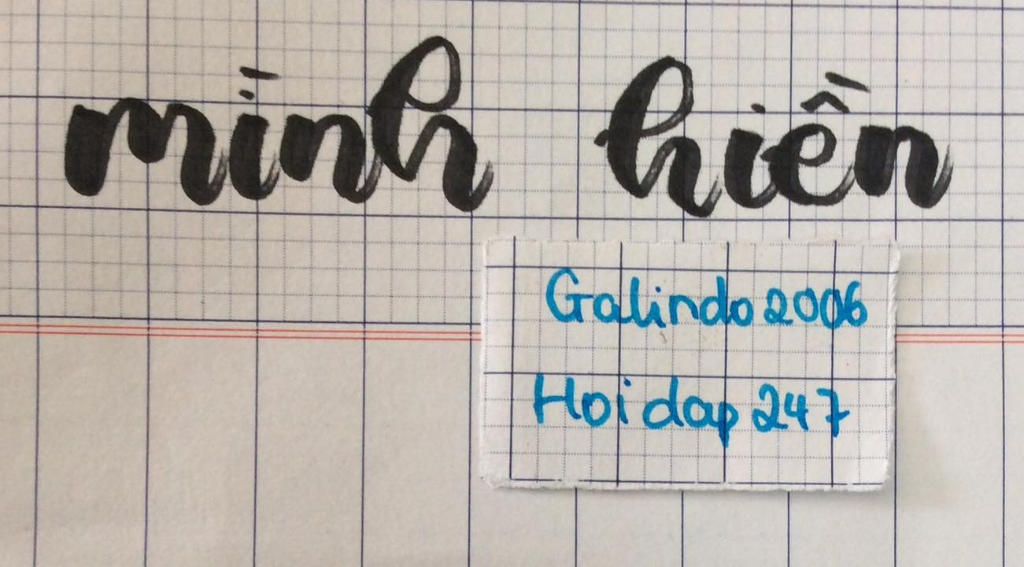 mình hiền
Galindo2006
Hoi dap 247